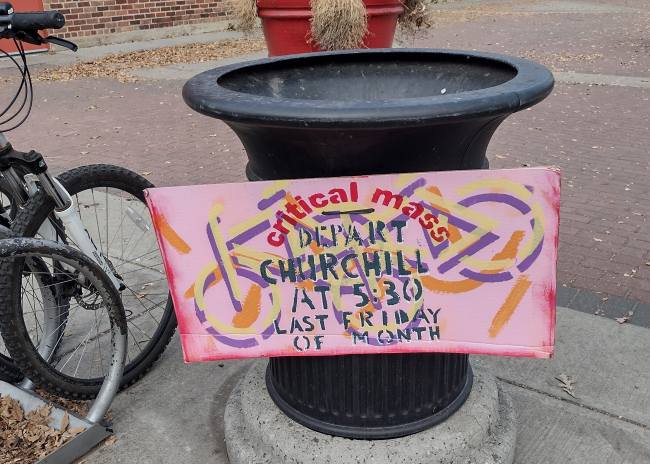 critical mass
DEPART
CHURCHILL
AT 5:30
LAST FRIDAY
OF MONTH